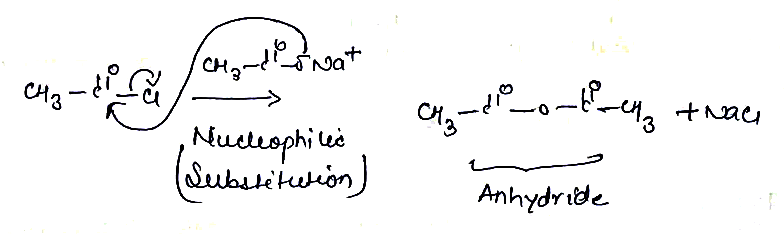 CH3-C(=O)-O⁻Na⁺
CH3-C(=O)-Cl
CH3-C(=O)-O-C(=O)-CH3 + NaCl
Nucleophilic
(Substitution)
Anhydride